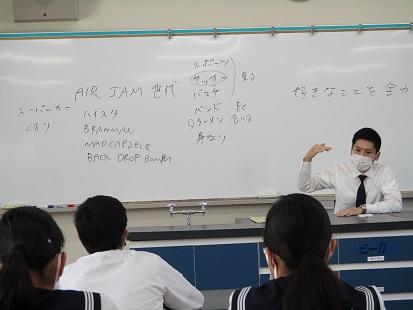 スーパーカー
くるり
AIR JAM 世代
ハイスタ
BRAHMAN
MAD CAPSULE
BACK DROP BOMB
スポーツ
サッカー
バスケ
見る
バンド
ラーメン
好きなことを全力